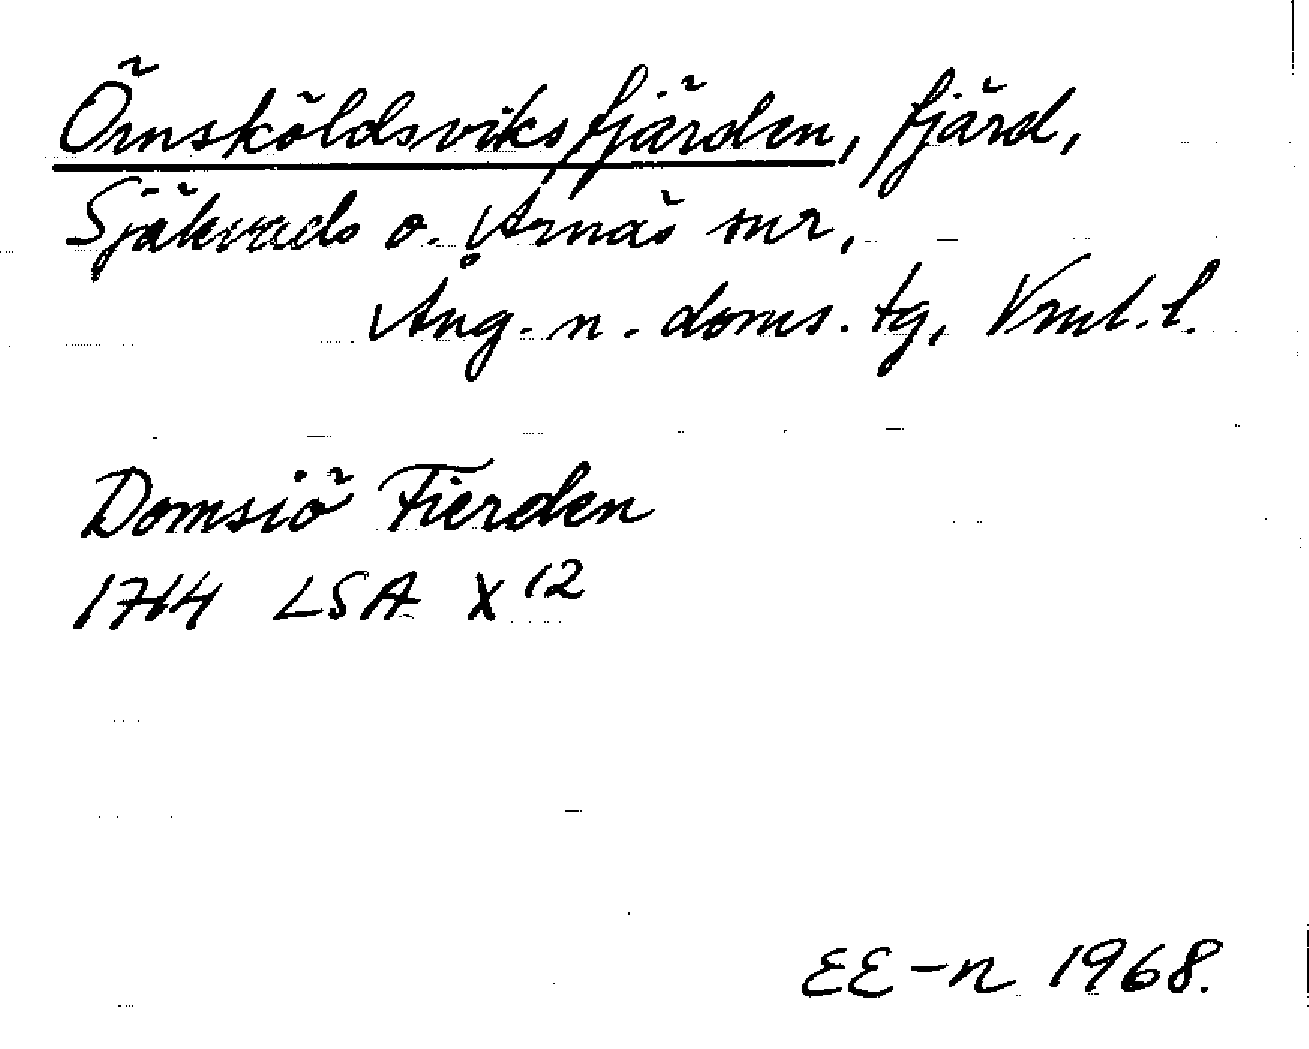 Örnsköldsviksfjärden, fjärd,
Själevads o. Arnäs snr,
Ång. n. doms. tg, Vrnl. l.
Domsiö Fierden
1714 LSA X 12
EE-n 1968.